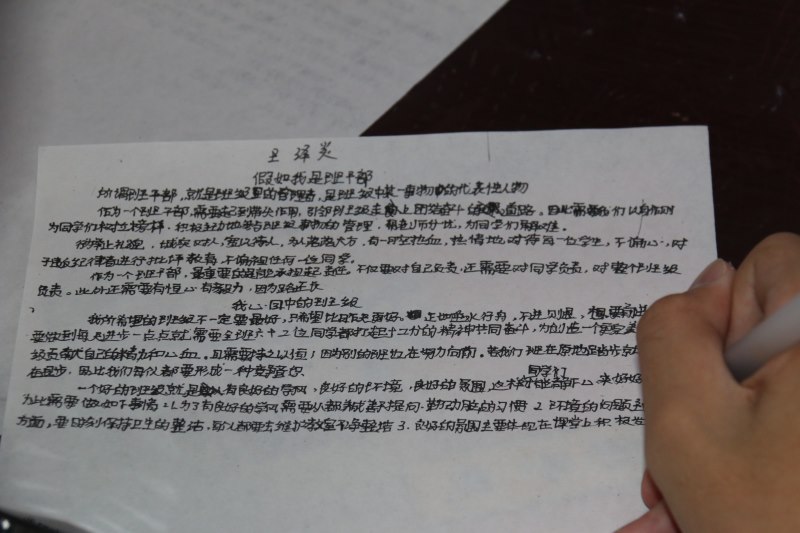 王泽炎
假如我是班干部
所谓班干部，就是班级里的管理者，是班级中某一事物的代表性人物
作为一个班干部，需要起到带头作用，引领班级走上团结奋斗的道路。因此需要我们以身作则
为同学们树立榜样，积极主动地参与班级事物的管理，帮老师分忧，为同学们解难。
行为举止礼貌，诚实对人，宽以待人，为人落落大方，有一时空热血，热情地对待每一位学生，不偏心，对
于违反纪律者进行批评教育，不偏袒任何一位同学。
作为一个班干部，最重要的是能承担起责任。不仅要对自己负责，还需要对同学负责，对整个班级
负责。此外还需要有恒心有毅力，因为路在长
我心目中的班级
我所希望的班级不一定要最好，只希望比昨天更好。正如逆水行舟，不进则退，想要前进
要做到每天进步一点点就需要全班六十二位同学都打起十二分的精神共同奋斗，为创造一个更完美
班级贡献自己的精力和心血。且需要持之以恒；因为别的班也在努力向前。若我们班在原地踏步
在退步，因此我们每个人都要形成一种竞争意识
同学们
一个好的班级就是有良好的学风，良好的环境，良好的氛围
为此需要做如下事情：1.为了有良好的学风需要人人都养成善于提问，勤动脑的习惯 2.环境的问题
方面，要时刻保持卫生的整洁，每人都要去维护教室干净整洁 3.良好的氛围主要体现在课堂上积极